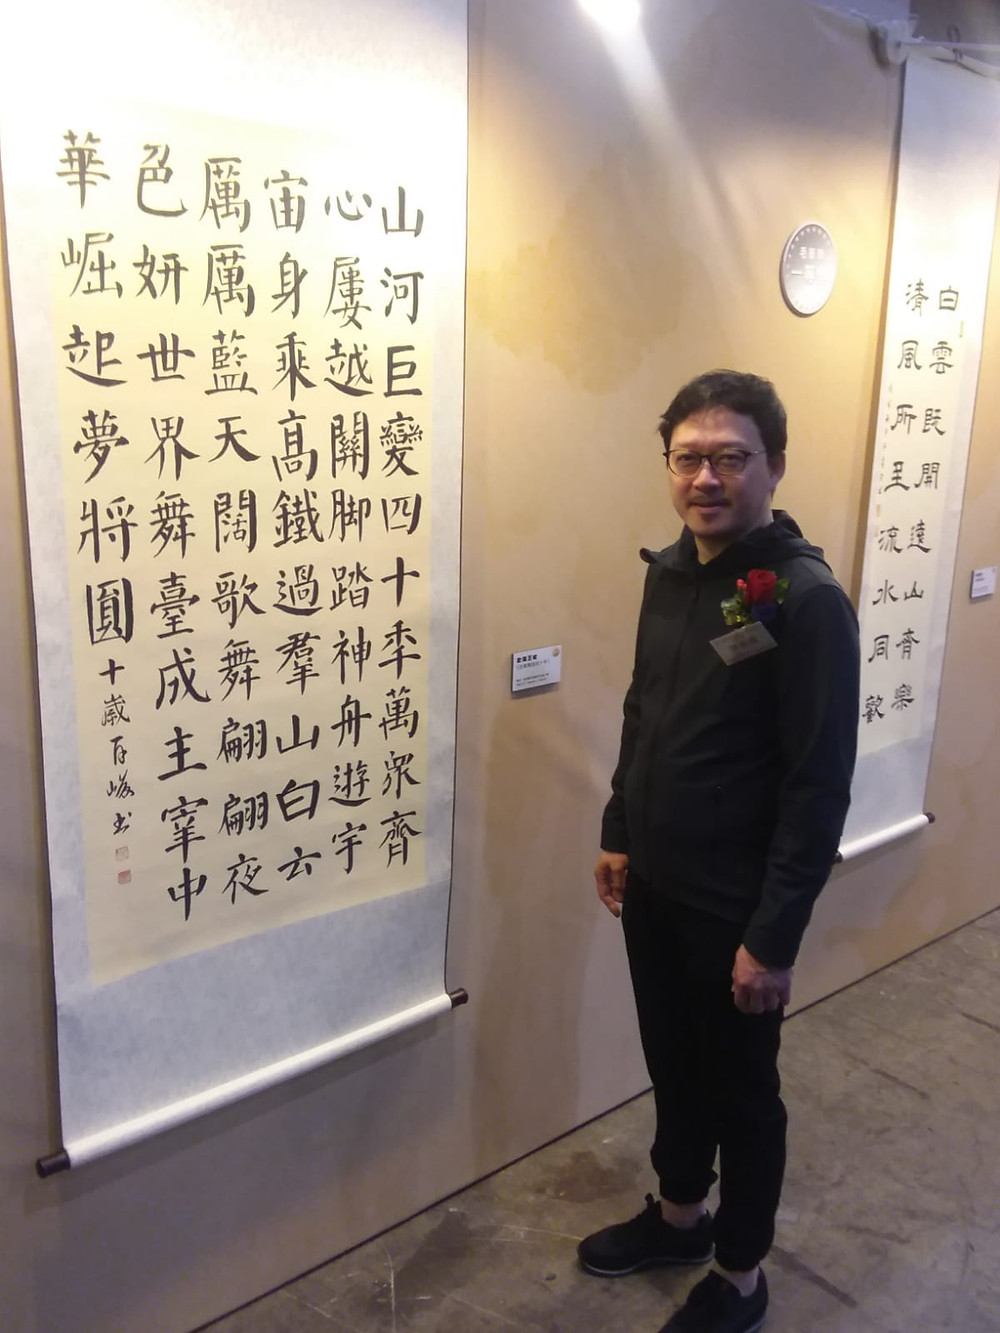 山河巨變四十秊萬眾齊
心屢越關脚踏神舟遊宇
宙身乘高鐵過羣山白云
厲厲藍天闊歌舞翩翩夜
色妍世界舞臺成主宰中
華崛起夢將圓
十歲
白雲既開遠山齊
清風所至流水同歡